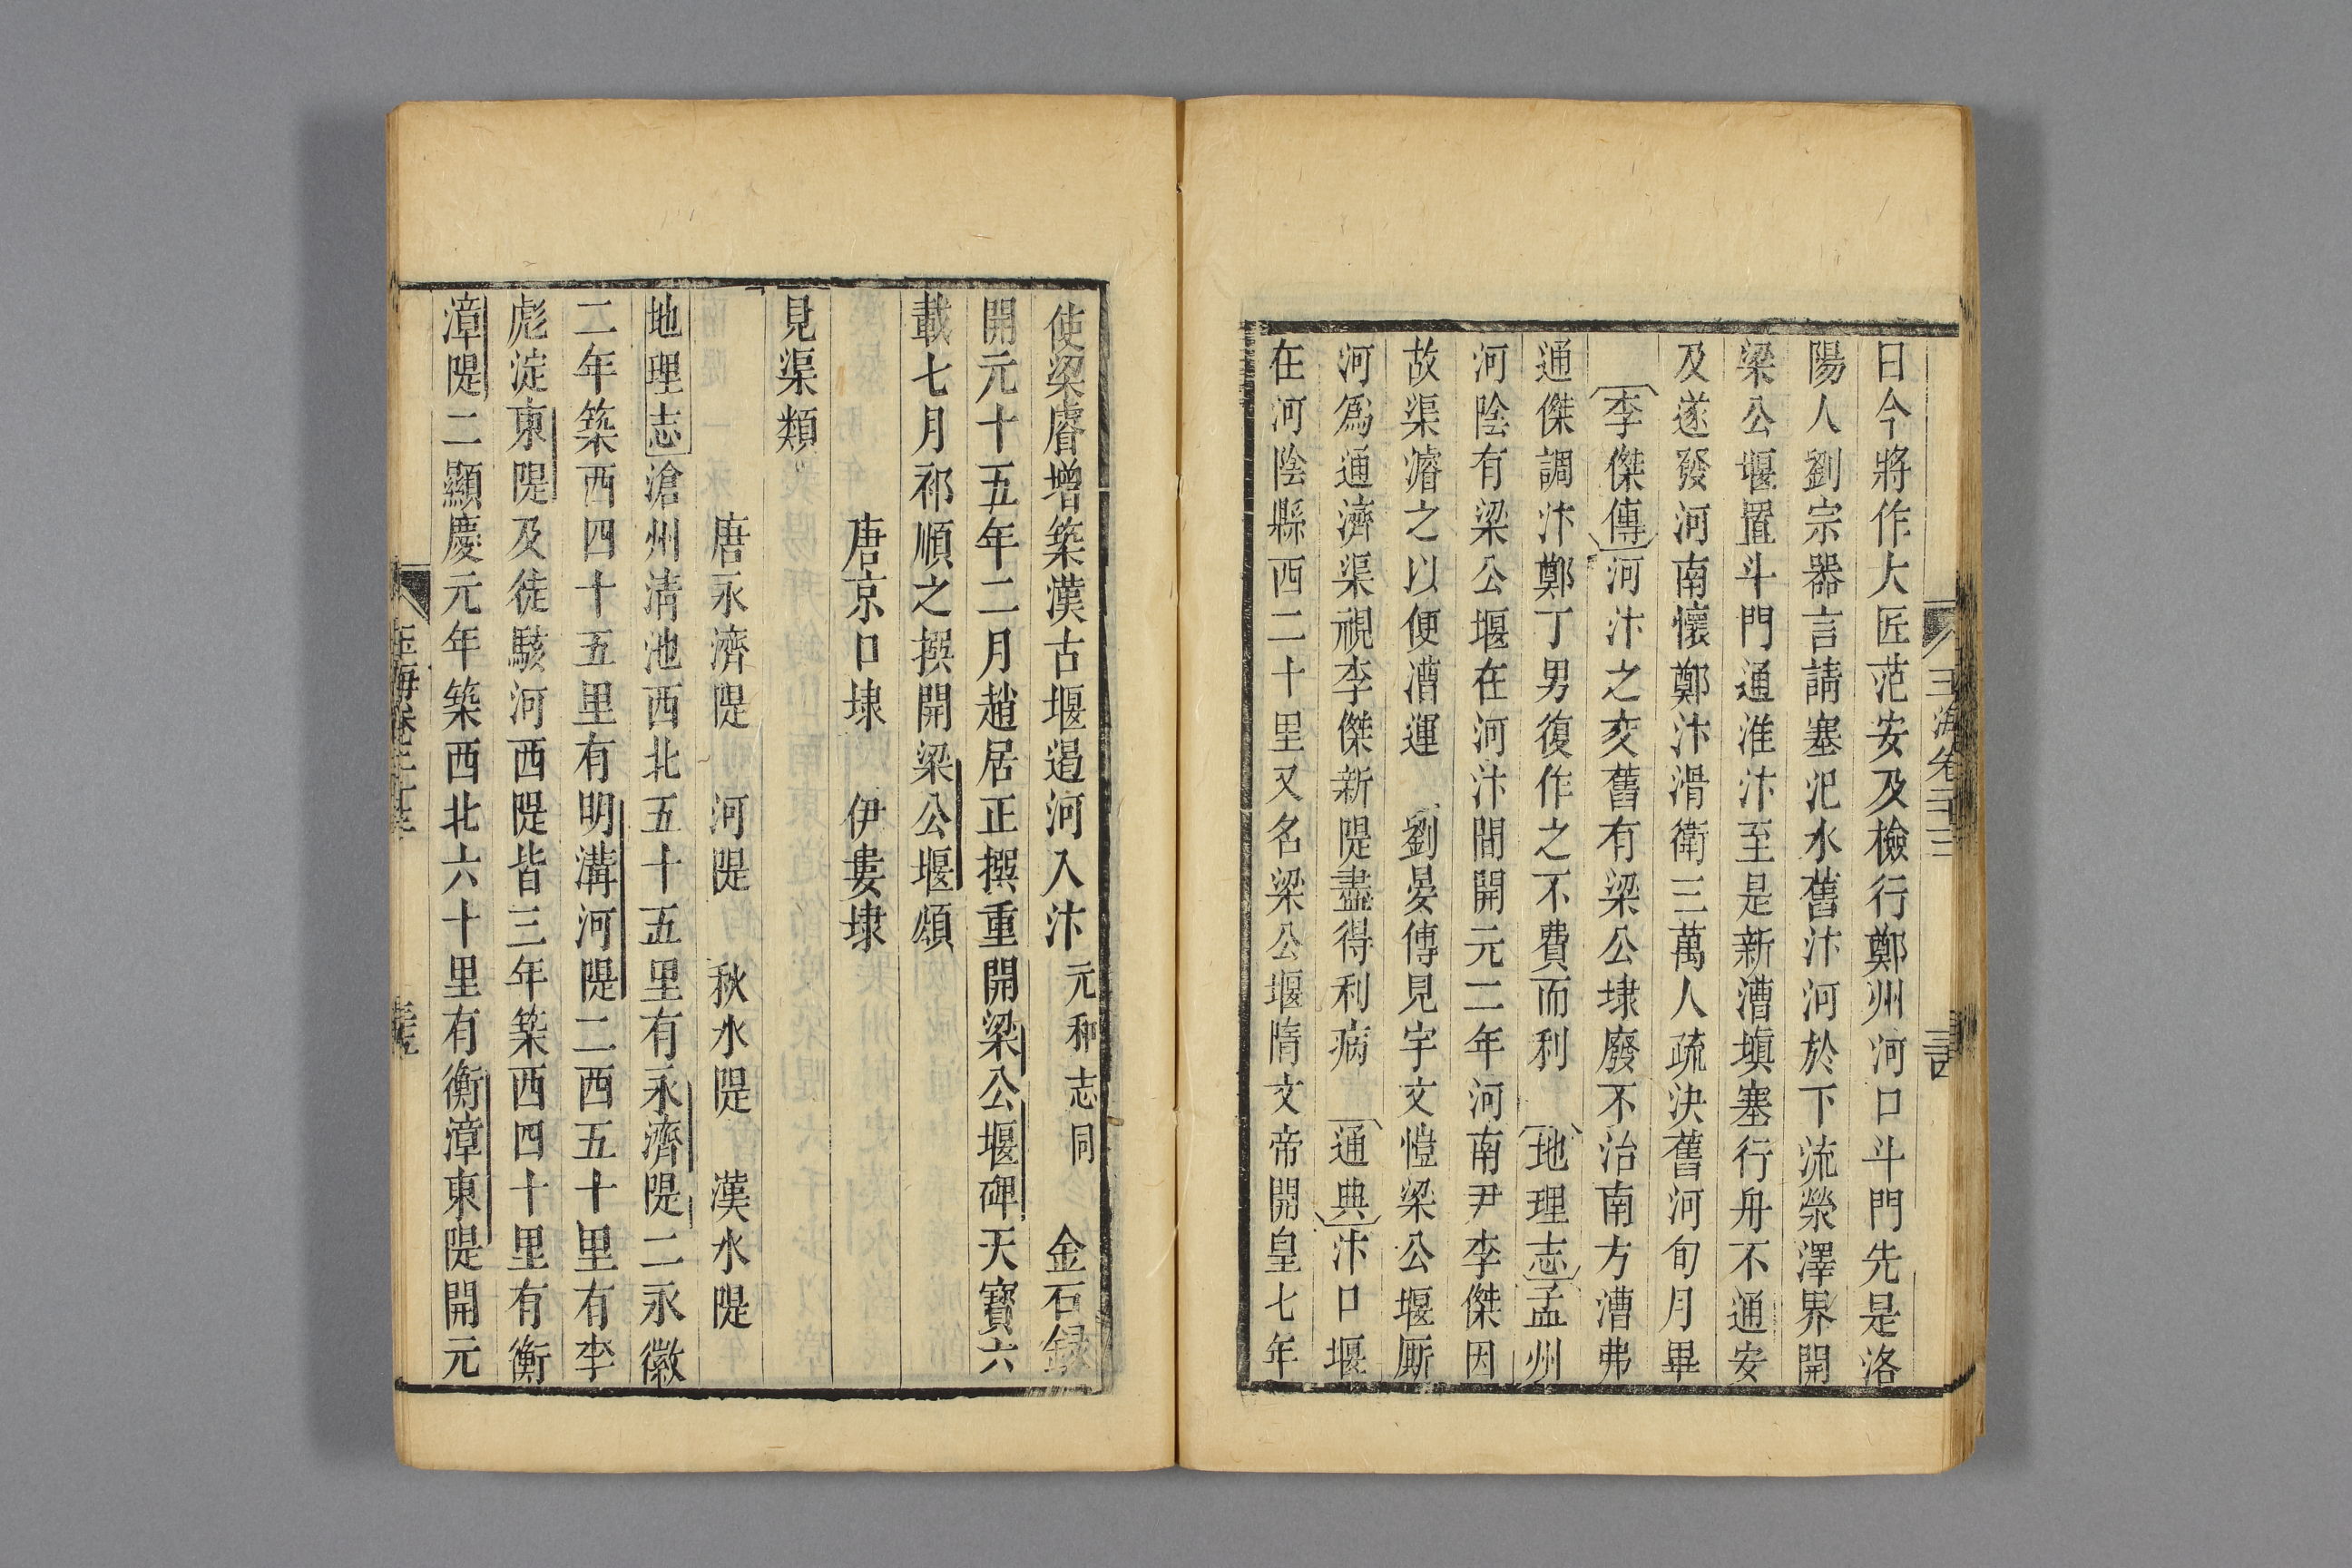 日今將作大匠范安及檢行鄭州河口斗門先是洛
陽人劉宗器言請塞汜水舊汴河於下流滎澤界開
梁公堰置斗門通淮汴至是新漕塡塞行舟不通安
及遂發河南懷鄭汴滑衛三萬人疏決舊河旬月畢
李傑傳河汴之交舊有梁公埭廢不治南方漕弗
通傑調汴鄭丁男復作之不費而利　地理志孟州
河陰有梁公堰在河汴間開元二年河南尹李傑因
故渠濬之以便漕運　劉晏傳見宇文愷梁公堰厮
河爲通濟渠視李傑新隄盡得利病　通典汴口堰
在河陰縣西二十里又名梁公堰隋文帝開皇七年
使梁睿增築漢古堰遏河入汴元和志同　金石録
開元十五年二月趙居正撰重開梁公堰碑天寶六
載七月祁順之撰開梁公堰頌
唐京口埭　伊婁埭
見渠類
唐永濟隄　河隄　秋水隄　漢水隄
地理志滄州清池西北五十五里有永濟隄二永徽
二年築西四十五里有明溝河隄二西五十里有李
彪淀東隄及徒駭河西隄皆三年築西四十里有衡
漳隄二顯慶元年築西北六十里有衡漳東隄開元